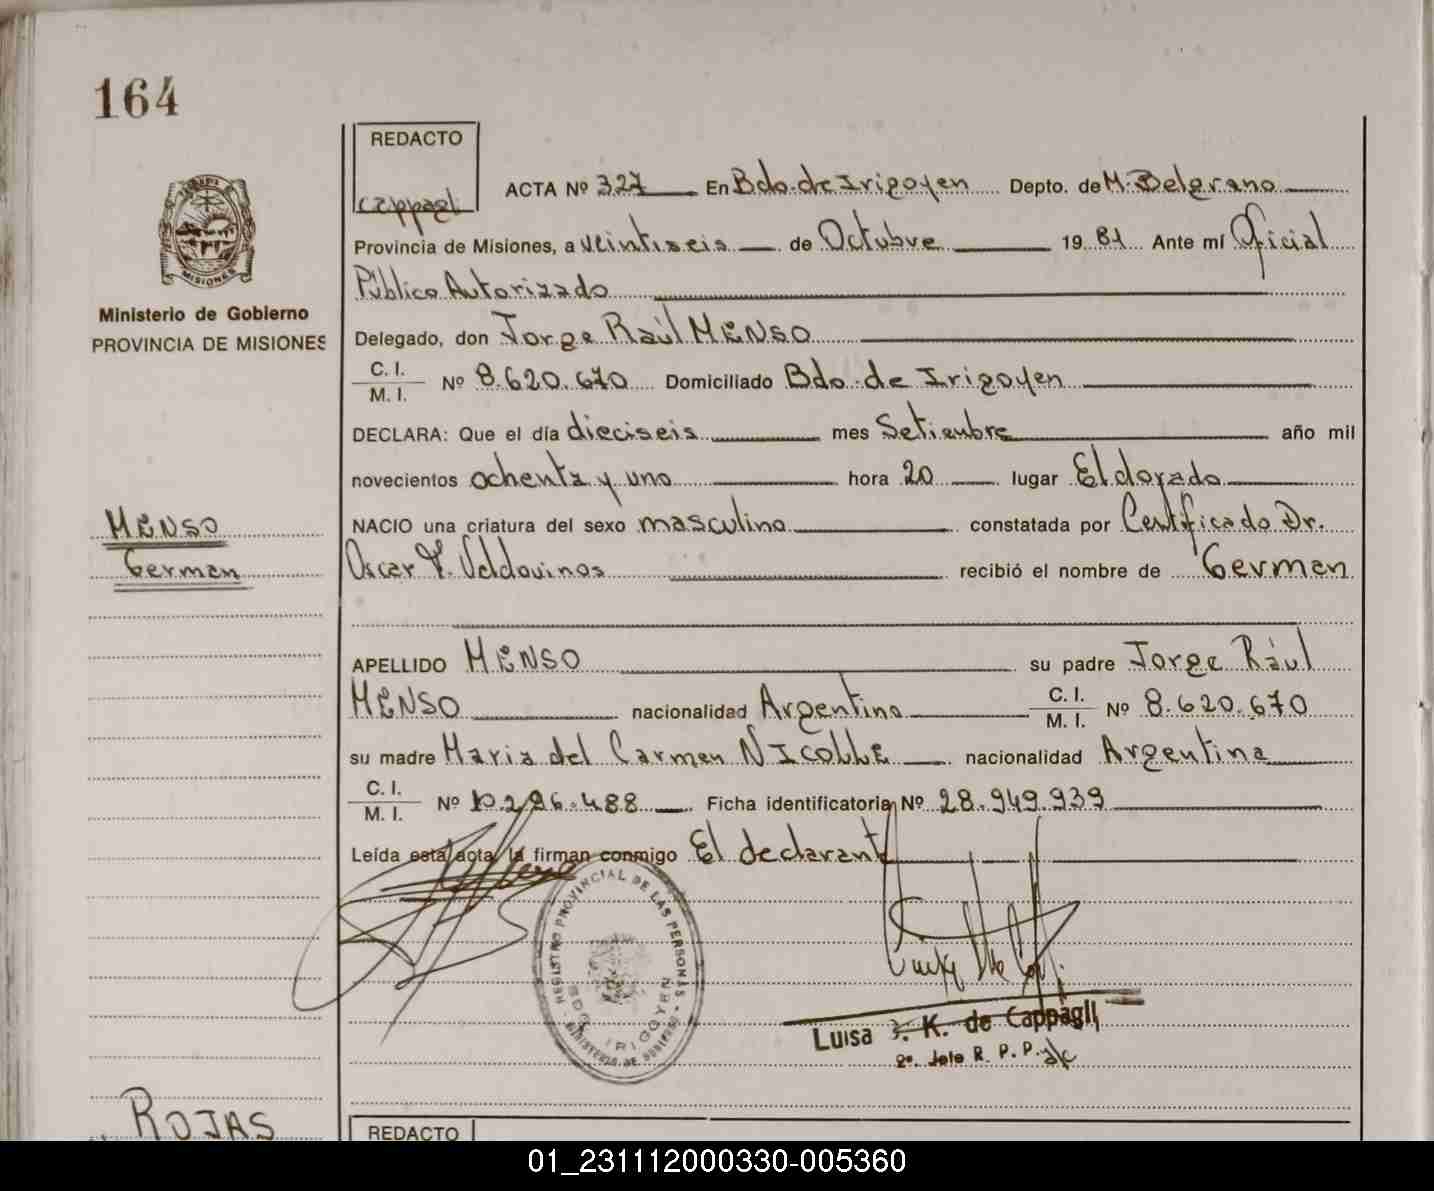 164
REDACTO
Cappagli
ACTA Nº 327 En Bdo. de Irigoyen Depto. de M. Belgrano
Provincia de Misiones, a veintiseis de Octubre 19 81 Ante mí Oficial
Público Autorizado
MISIONES
Ministerio de Gobierno
PROVINCIA DE MISIONES
Delegado, don Jorge Raúl MENSO
C. I.
M. I. Nº 8.620.670 Domiciliado Bdo. de Irigoyen
DECLARA: Que el día dieciseis mes Setiembre año mil
novecientos ochenta y uno hora 20 lugar Eldorado
MENSO
German
NACIO una criatura del sexo masculino constatada por Certificado Dr.
Oscar Valdovinos recibió el nombre de German
APELLIDO MENSO su padre Jorge Raúl
MENSO nacionalidad Argentina C. I.
M. I. Nº 8.620.670
su madre Maria del Carmen NICOLLE nacionalidad Argentina
C. I.
M. I. Nº 10.296.488 Ficha identificatoria Nº 28.949.939
Leída esta acta, la firman conmigo El declarante
REGISTRO PROVINCIAL DE LAS PERSONAS
BDO. IRIGOYEN
MINISTERIO DE GOBIERNO
Luisa K. de Cappagli
2º. Jefe R. P. P.
ROJAS
REDACTO
01_231112000330-005360